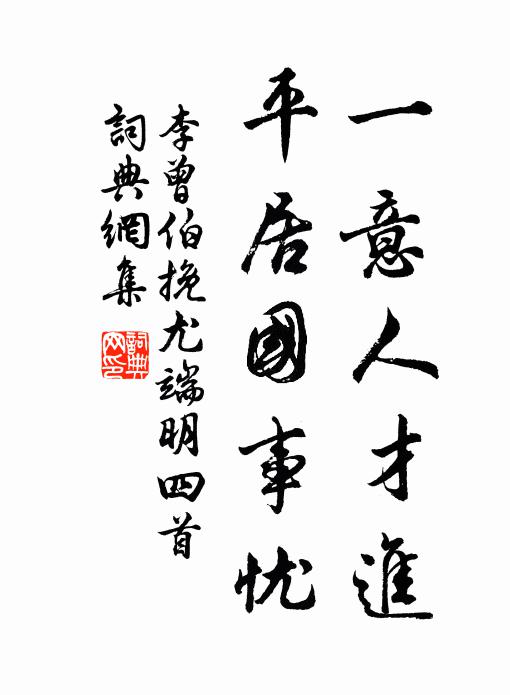 一意人才進
平居國事忧
李曾伯挽尤端明四首
詞典網集
詞典
网印